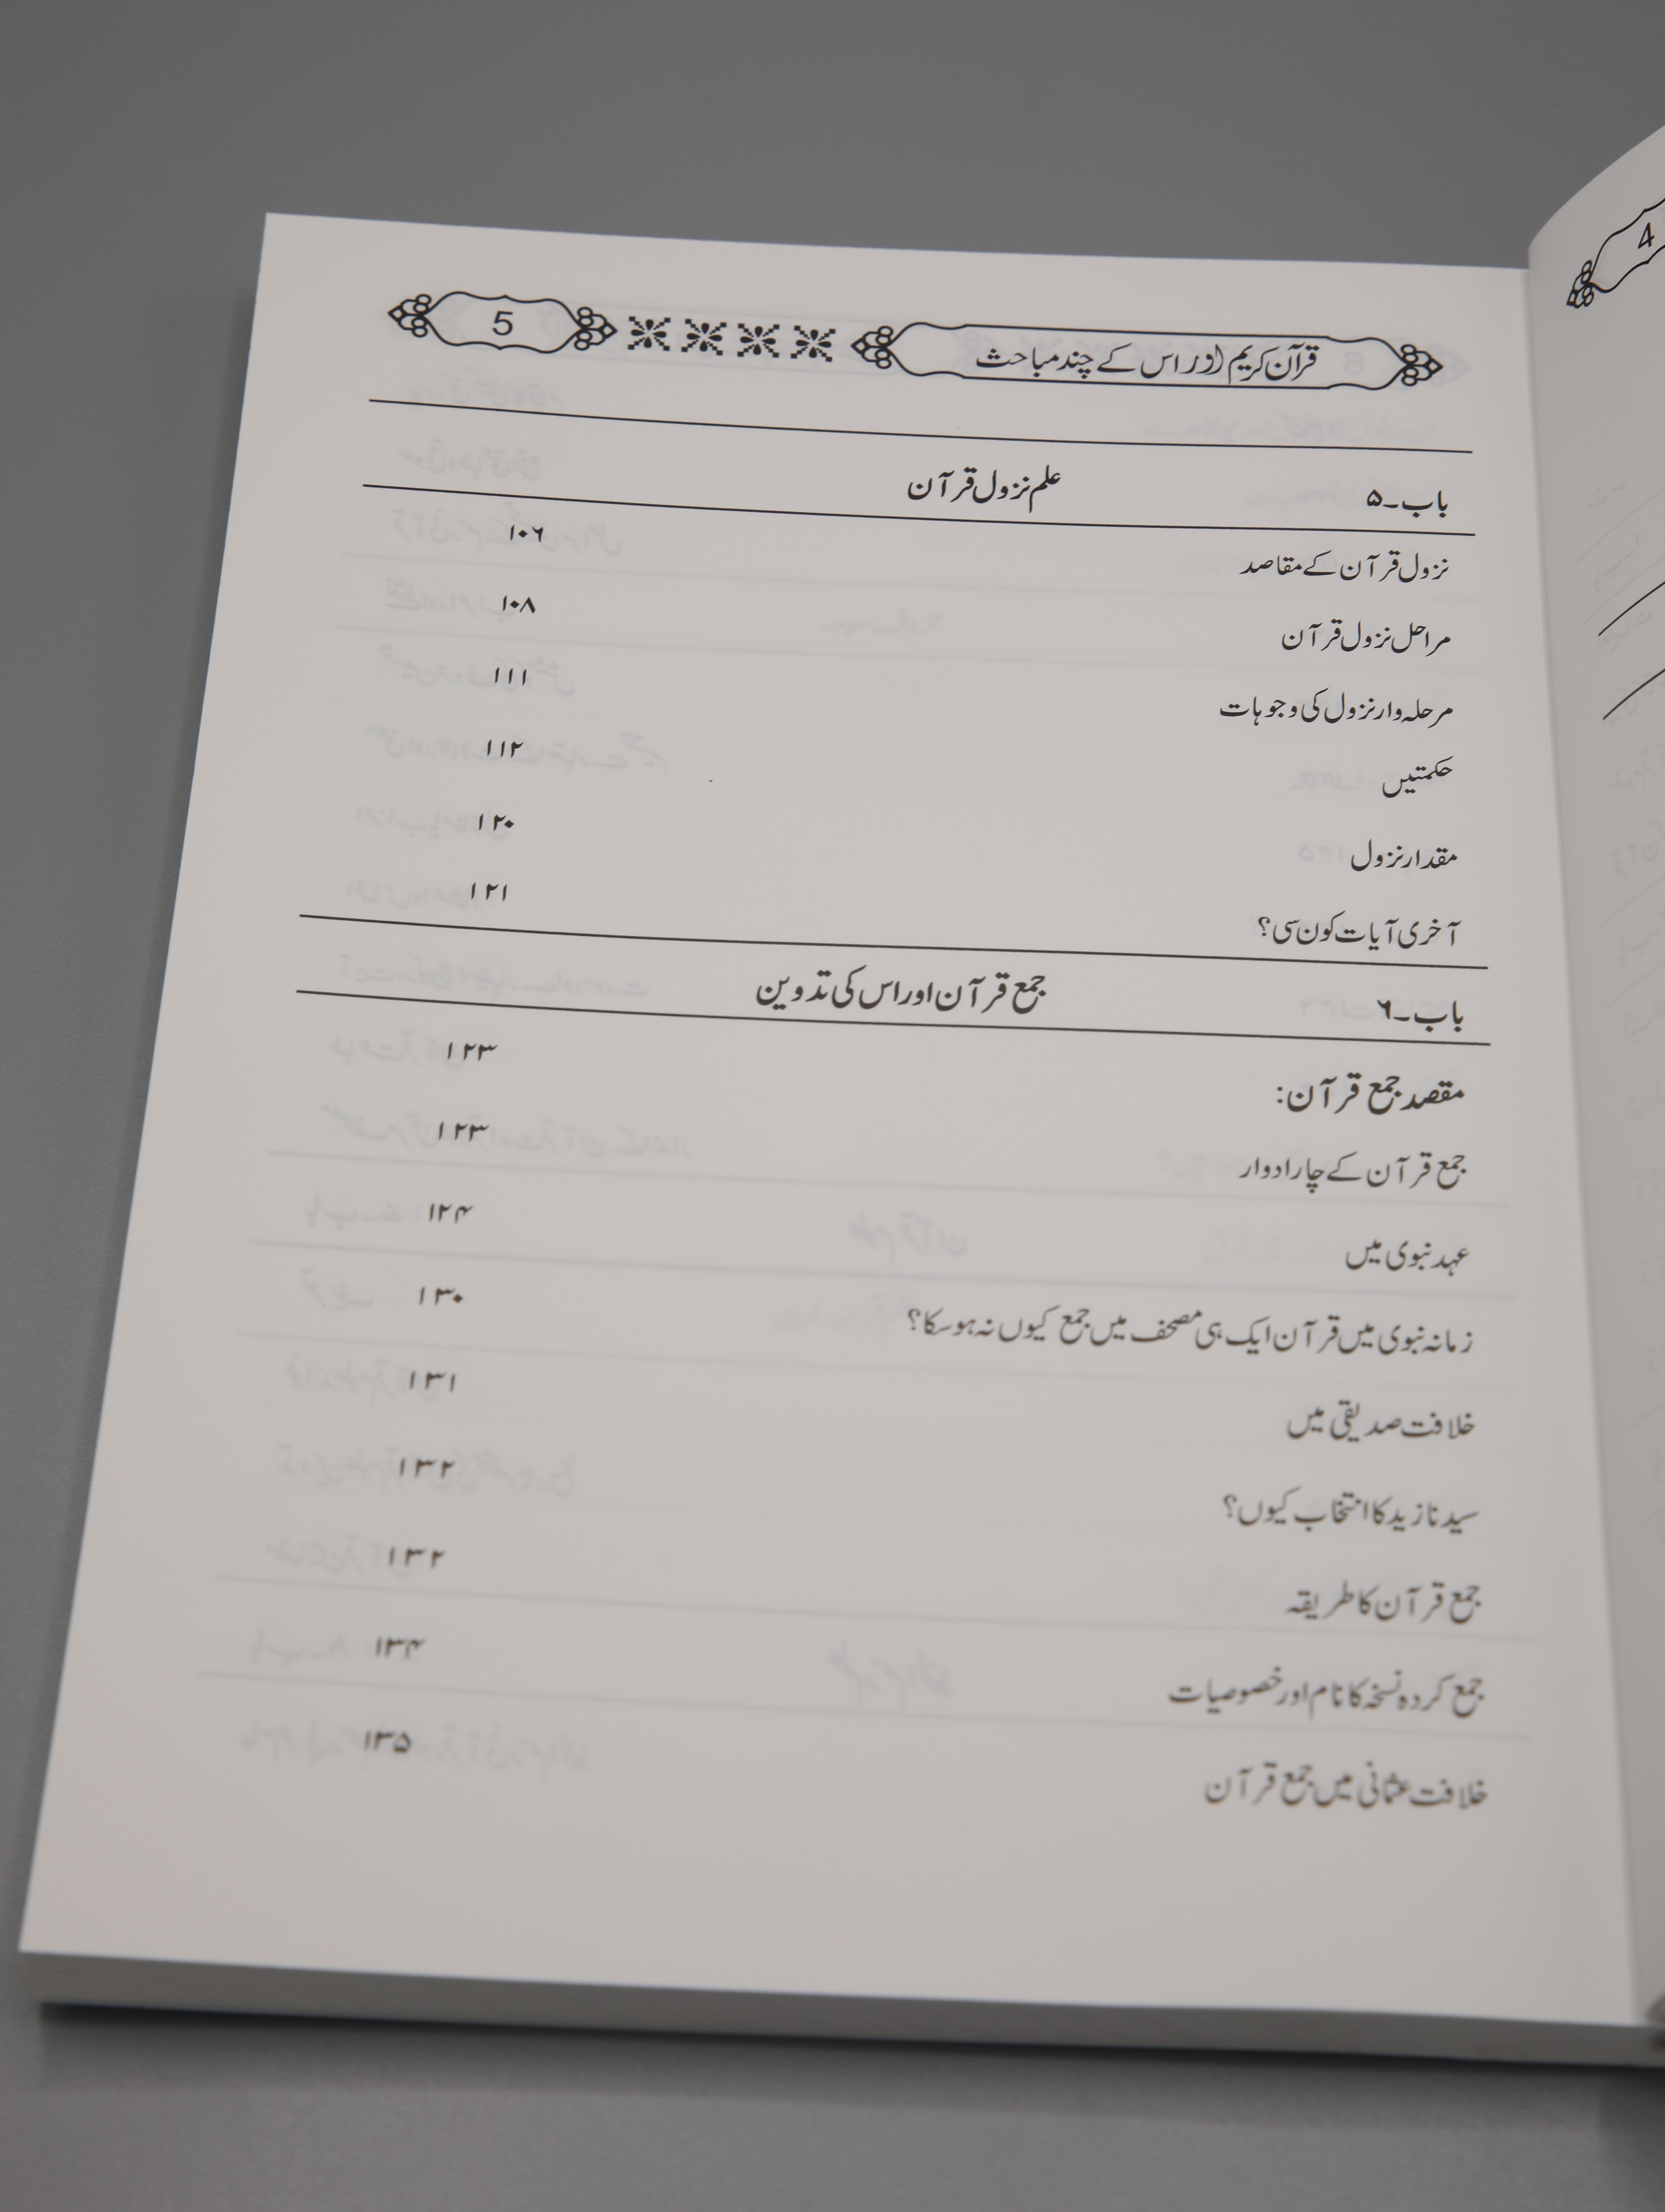 قرآن کریم اور اس کے چند مباحث 5
باب۔۵ علم نزول قرآن
نزول قرآن کے مقاصد ۱۰۶
مراحل نزول قرآن ۱۰۸
مرحلہ وار نزول کی وجوہات ۱۱۱
حکمتیں ۱۱۲
مقدار نزول ۱۲۰
آخری آیات کون سی؟ ۱۲۱
باب۔۶ جمع قرآن اور اس کی تدوین
مقصد جمع قرآن: ۱۲۳
جمع قرآن کے چار ادوار ۱۲۳
عہد نبوی میں ۱۲۴
زمانہ نبوی میں قرآن ایک ہی مصحف میں جمع کیوں نہ ہو سکا؟ ۱۳۰
خلافت صدیقی میں ۱۳۱
سیدنا زید کا انتخاب کیوں؟ ۱۳۲
جمع قرآن کا طریقہ ۱۳۲
جمع کردہ نسخہ کا نام اور خصوصیات ۱۳۴
خلافت عثمانی میں جمع قرآن ۱۳۵
4